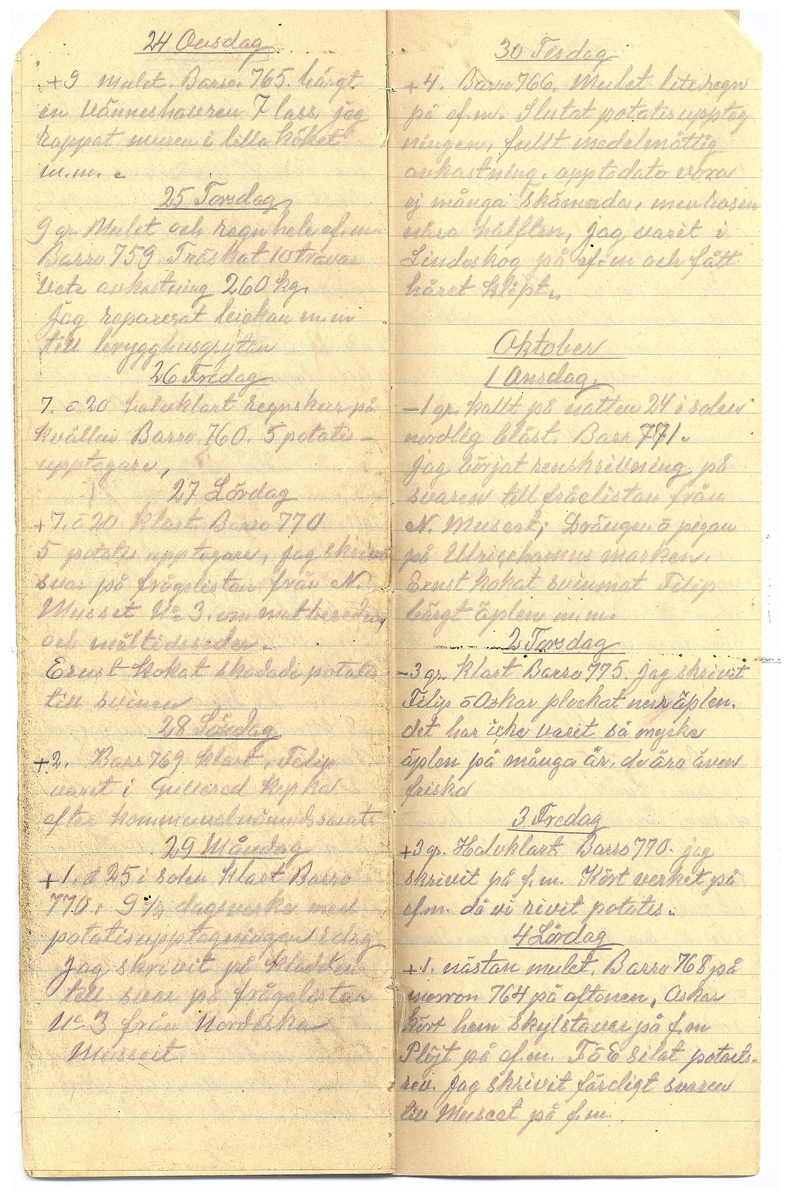 24 Onsdag
+9 mulet. Barro. 765. bärgt
en vänneshaveren 7 lass, jag
rappat muren i lilla köket
m.m.
25 Torsdag
9 gr. Mulet och regn hela ef.m
Barro 759 Tröskat 10 travar
vete avkastning 260 kg.
jag reparerat luckan m.m
till brygghusgrytan
26 Fredag
7. o 20 halvklart regnskur på
kvällen Barro. 760. 5 potatis-
upptagare,
27 Lördag
+7. o 20 klart Barro 770
5 potatis upptagare, jag skrivit
svar på frågelistan från N.
Museet No 3. om matberedning
och måltidsseder.
Ernst kokat skadade potatis
till svinen
28 Söndag
+2. Barr 769 klart, Filip
varit i Gullered kyrka
efter kommunalnämndssamt
29 Måndag
+1. o 25 i solen klart Barro
770. 9 1/2 dagsverke med
potatisupptagningen idag
jag skrivit på kladden
till svar på frågelistan
No 3 från Nordiska
Museet
30 Tisdag
+4. Barro 766. Mulet lite regn
på ef.m. Slutat potatisupptag
ningen, fullt medelmåttig
avkastning, upptodate voro
ej många skämda, men
nära hälften, jag varit i
Lindeskog på ef.m och fått
håret klipt.
Oktober
1 Onsdag
-1 gr. kallt på natten 24 i solen
nordlig blåst. Barr 771.
jag börjat renskrivning på
svaren till frågelistan från
N. Museet; Drängen o pigan
på Ulricehamns marken.
Ernst kokat svinmat Filip
bärgt äplen m.m.
2 Torsdag
-3 gr. klart Barro 775. jag skrivit
Filip o Oskar plockat ner äplen.
det har icke varit så mycke
äplen på många år, de ära även
friska
3 Fredag
+3 gr. Halvklart Barro 770. jag
skrivit på f.m. Kört verket på
ef.m. då vi rivit potatis.
4 Lördag
+1. nästan mulet. Barro 768 på
morron 764 på aftonen, Oskar
kört hem skylstaver på f.m
Plöjt på ef.m. F o E silat potatis-
rev. jag skrivit färdigt svaren
till Museet på f.m.